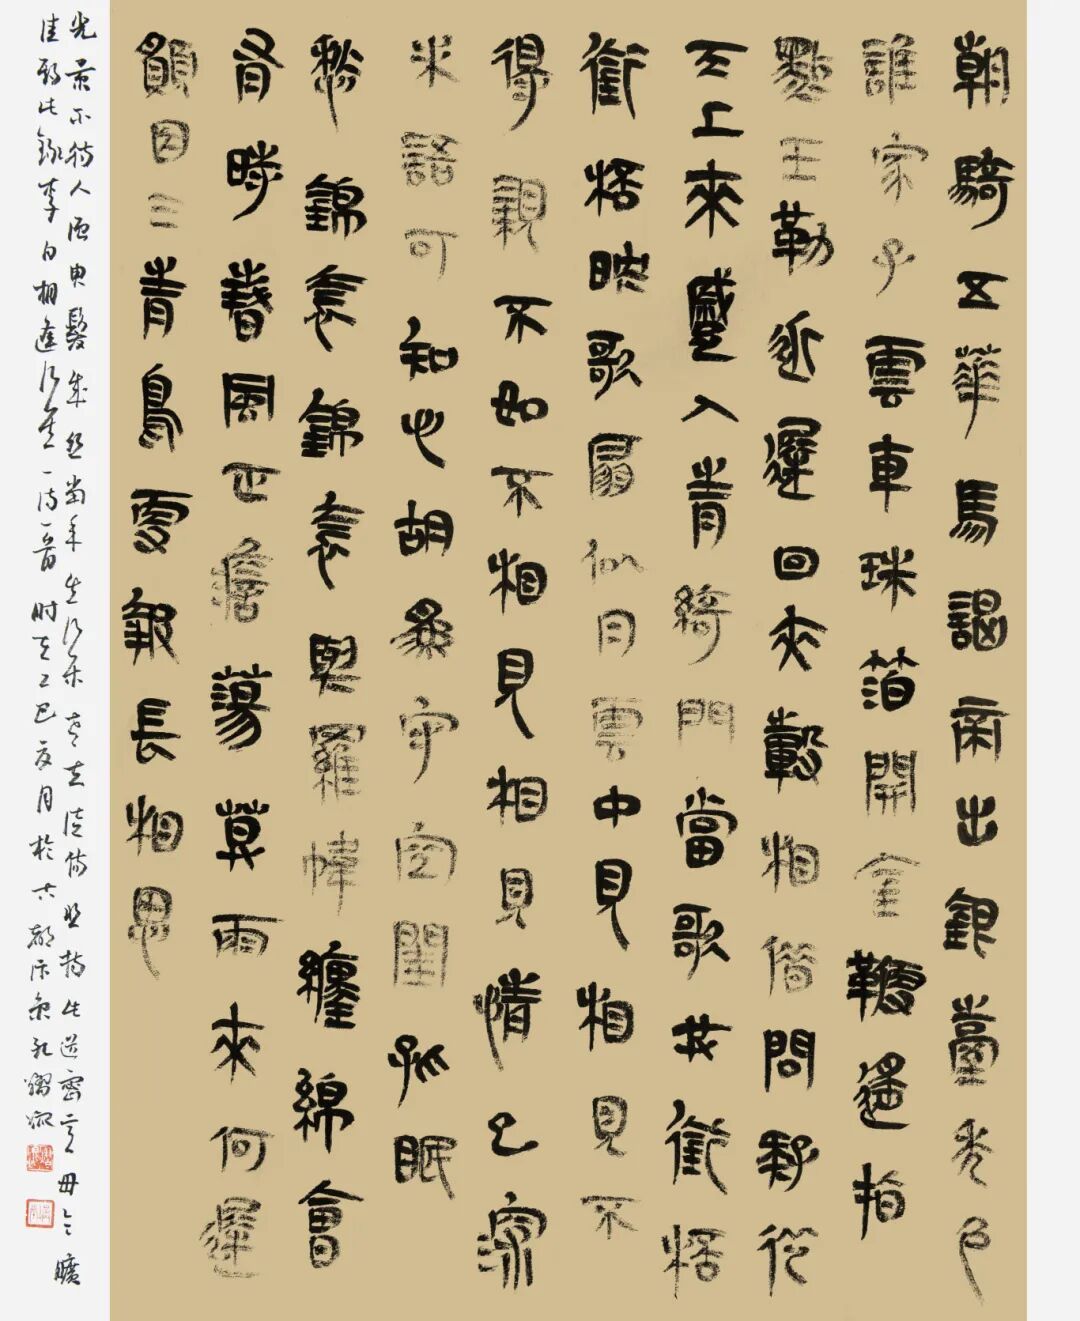 朝騎五華馬謁帝出銀臺秀色
誰家子雲車珠箔開金鞭遙指
點玉勒近遲回夾轂相借問疑從
天上來蹙入青綺門當歌共銜桮
銜桮映歌扇似月雲中見相見不
得親不如不相見相見情已深
未語可知心胡為守空閨孤眠
愁錦衾錦衾與羅幃纏綿會
有時春風正澹蕩莫雨來何遲
願因三青鳥更報長相思
光景不待人須臾髮成絲當年失行樂老去徒傷悲持此道密意毋令曠
佳期此錄李白相逢行其一詩一首时在乙巳夏月於古都汴京孔